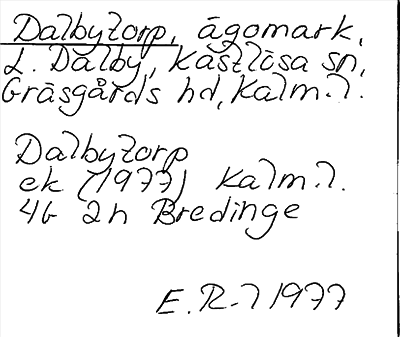 Dalbytorp, ägomark,
L. Dalby, Kastlösa sn,
Gräsgårds hd, Kalm.l.
Dalbytorp
ek (1977) Kalm.l.
4G 2h Bredinge
E.R-l 1977